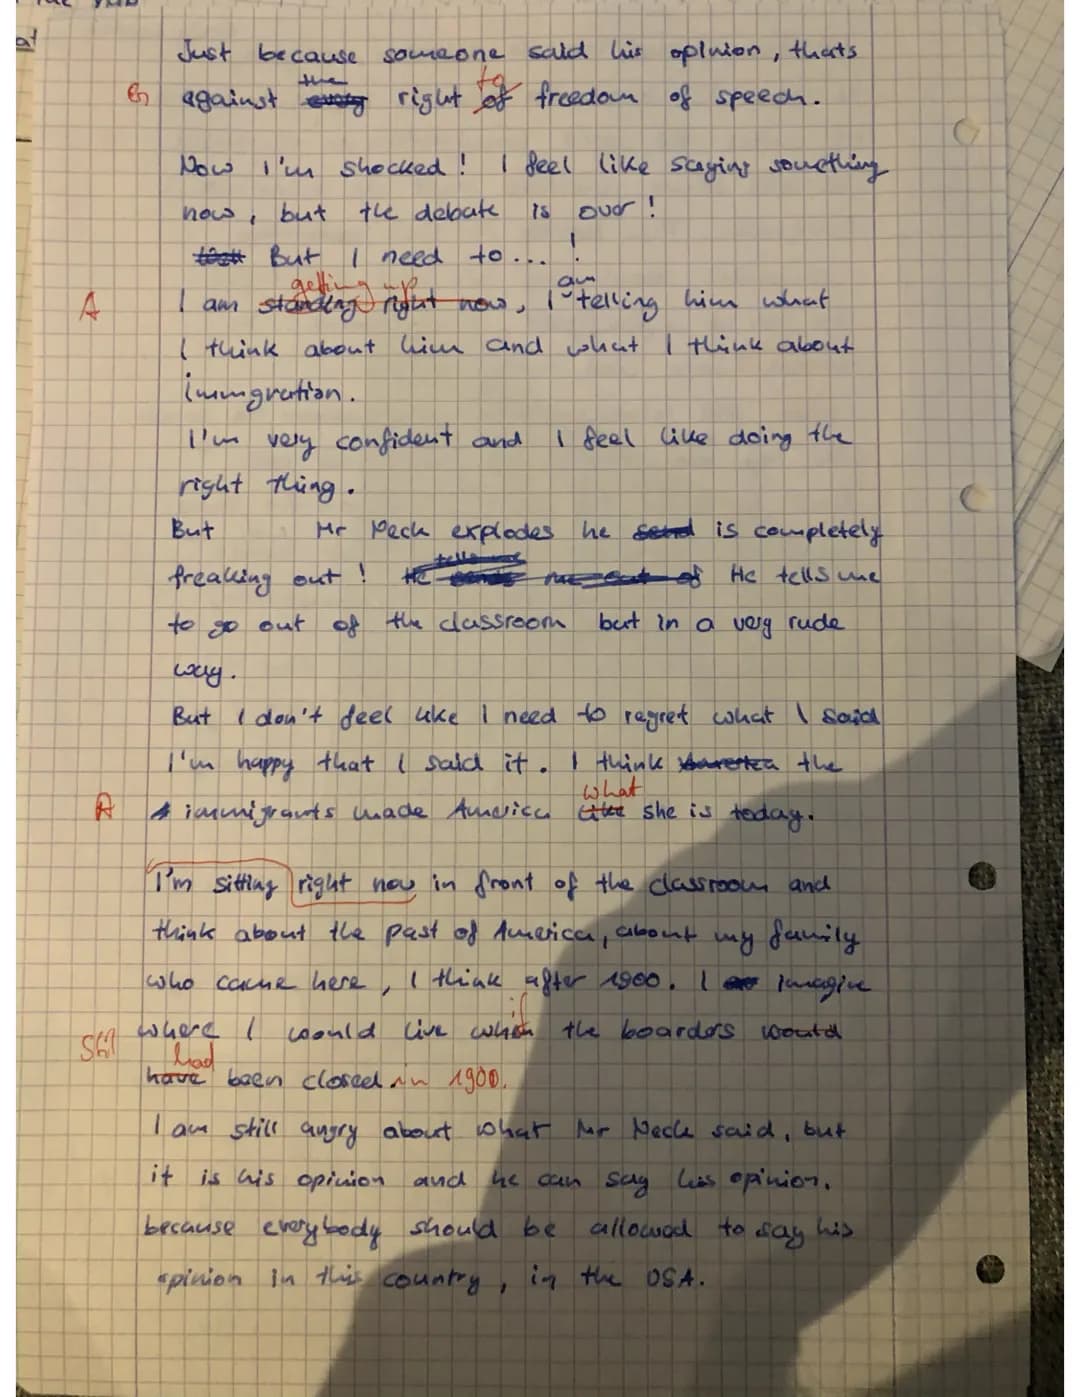 Just because someone said his opinion, thats
the to
against right of freedom of speech.
Now I'm shocked! I feel like saying something
now, but the debate is over!
But I need to...!
getting up am
A I am standing right now, I telling him what
I think about him and what I think about
immigration.
I'm very confident and I feel like doing the
right thing.
But Mr Neck explodes he send is completely
freaking out! He tells me
to go out of the classroom but in a very rude
way.
But I don't feel like I need to regret what I said
I'm happy that I said it. I think America the
what
A immigrants made America like she is today.
I'm sitting right now in front of the classroom and
think about the past of America, about my family
who came here, I think after 1900. I imagine
if
where I would live when the boarders would
Stil had
have been closed in 1900.
I am still angry about what Mr Neck said, but
it is his opinion and he can say his opinion,
because everybody should be allowed to say his
opinion in this country, in the USA.